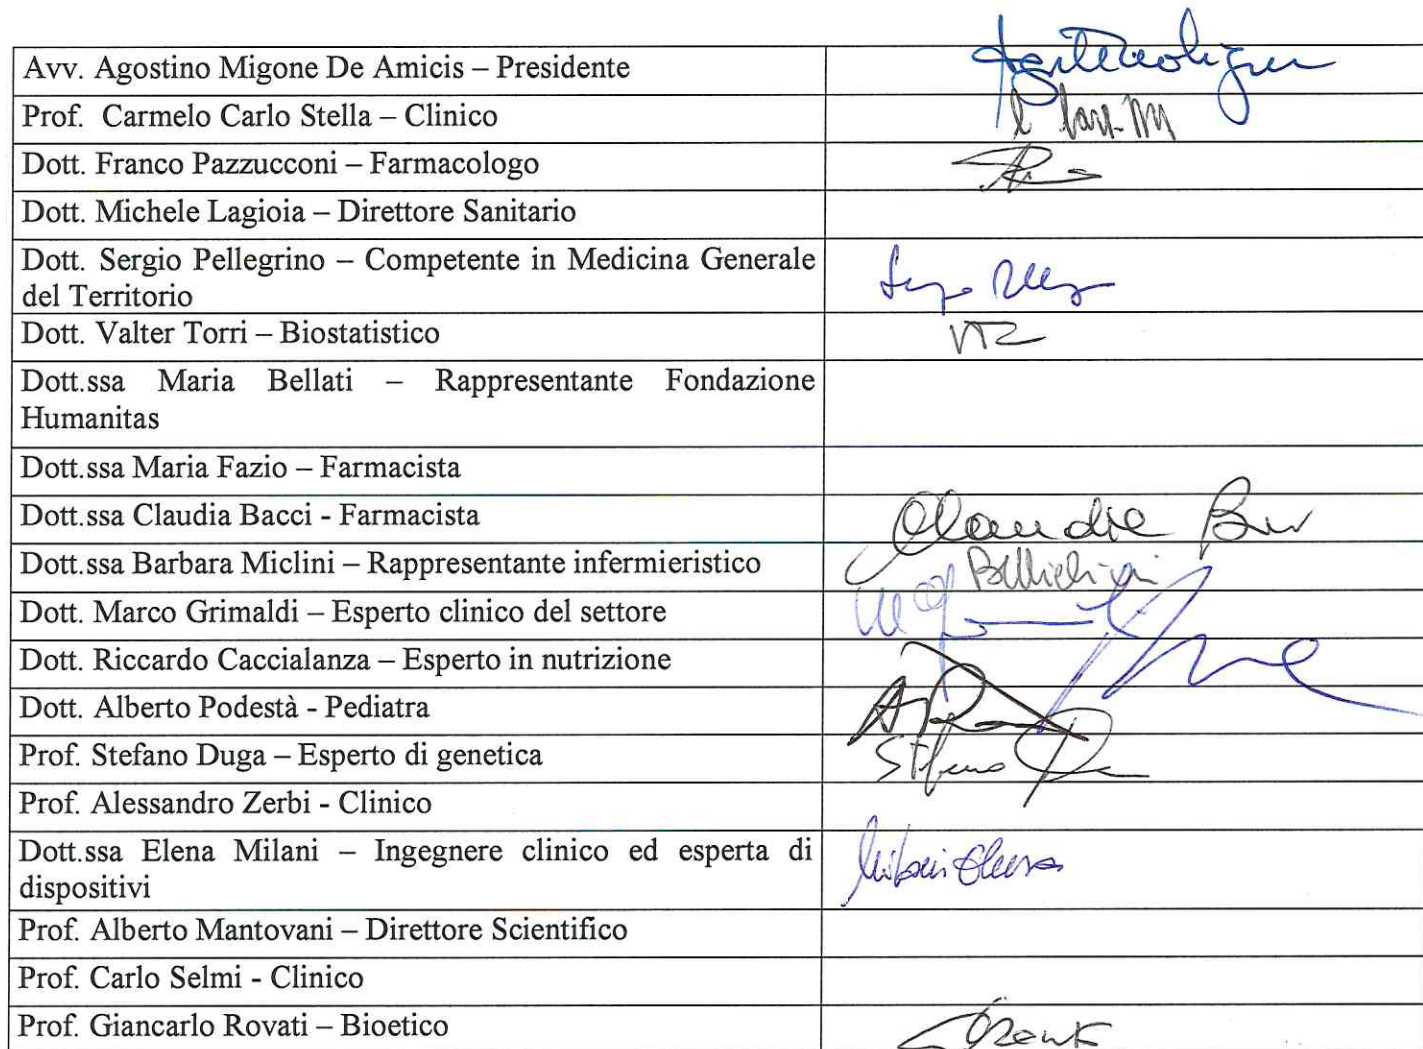 Avv. Agostino Migone De Amicis – Presidente
Prof. Carmelo Carlo Stella – Clinico
Dott. Franco Pazzucconi – Farmacologo
Dott. Michele Lagioia – Direttore Sanitario
Dott. Sergio Pellegrino – Competente in Medicina Generale
del Territorio
Dott. Valter Torri – Biostatistico
Dott.ssa Maria Bellati – Rappresentante Fondazione
Humanitas
Dott.ssa Maria Fazio – Farmacista
Dott.ssa Claudia Bacci - Farmacista
Claudia
Dott.ssa Barbara Miclini – Rappresentante infermieristico
Dott. Marco Grimaldi – Esperto clinico del settore
Dott. Riccardo Caccialanza – Esperto in nutrizione
Dott. Alberto Podestà - Pediatra
Prof. Stefano Duga – Esperto di genetica
Stefano
Prof. Alessandro Zerbi - Clinico
Dott.ssa Elena Milani – Ingegnere clinico ed esperta di
dispositivi
Milani Elena
Prof. Alberto Mantovani – Direttore Scientifico
Prof. Carlo Selmi - Clinico
Prof. Giancarlo Rovati – Bioetico